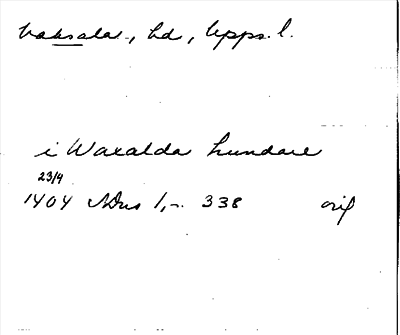 Vaksala, hd, Upps. l.
i Waxalda hundare
23/9
1404 SDns 1, n. 338 orig